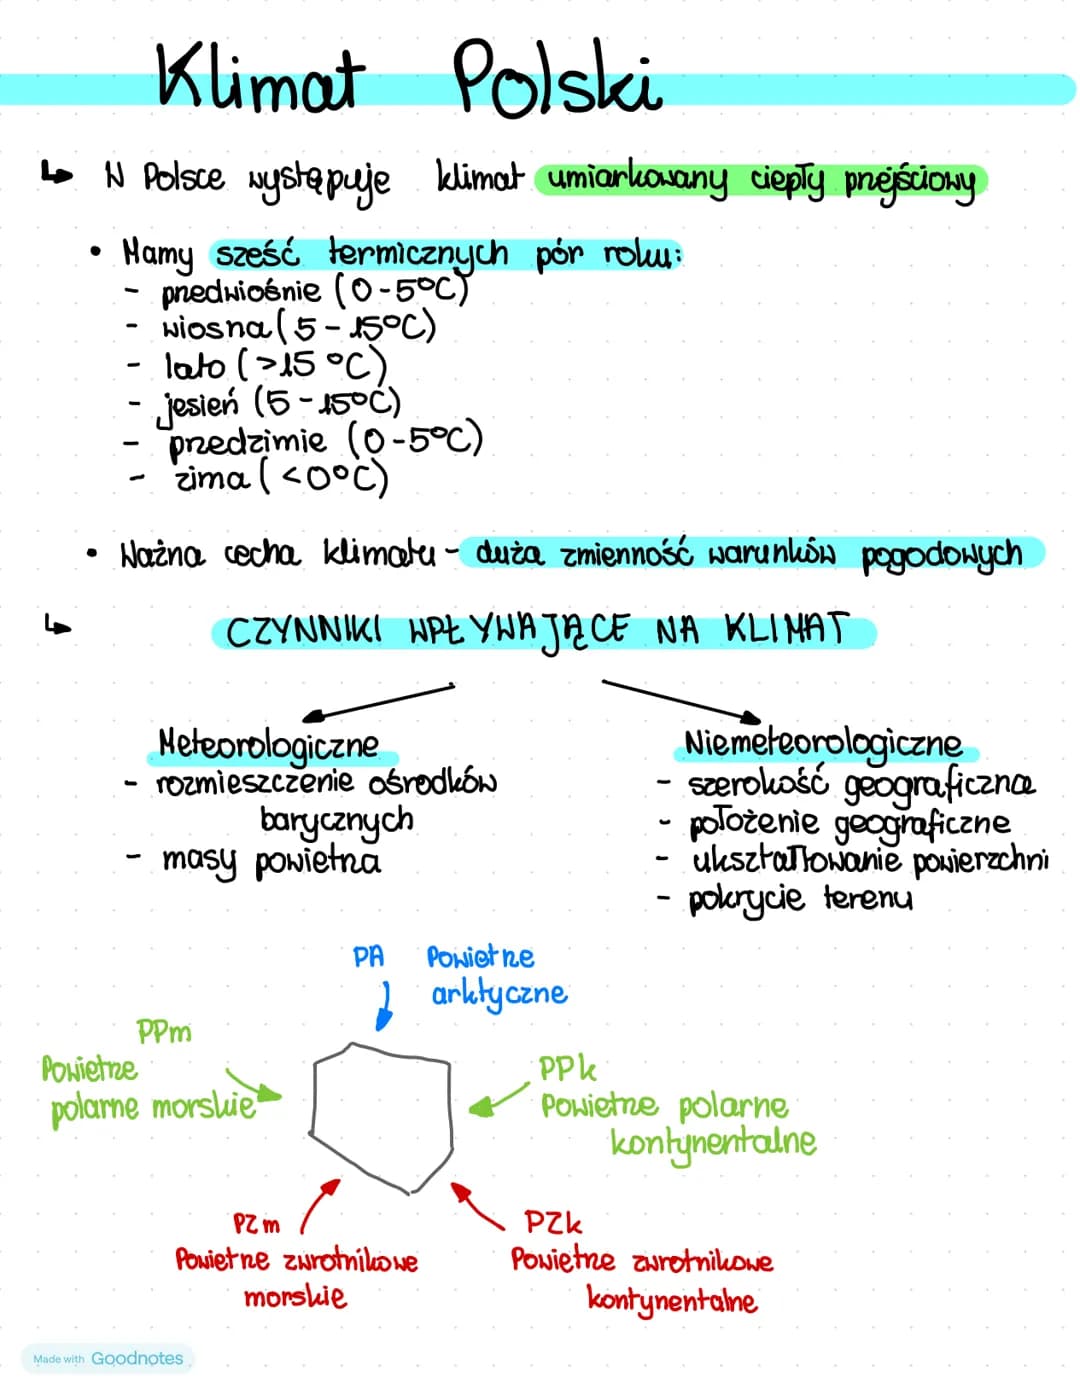 Klimat Polski
↳ W Polsce występuje klimat umiarkowany ciepły przejściowy
• Mamy sześć termicznych pór roku:
- przedwiośnie (0-5°C)
- wiosna (5-15°C)
- lato (>15°C)
- jesień (5-15°C)
- przedzimie (0-5°C)
- zima (<0°C)
• Ważna cecha klimatu - duża zmienność warunków pogodowych
↳ CZYNNIKI WPŁYWAJĄCE NA KLIMAT
Meteorologiczne
- rozmieszczenie ośrodków
barycznych
- masy powietrza
Niemeteorologiczne
- szerokość geograficzna
- położenie geograficzne
- ukształtowanie powierzchni
- pokrycie terenu
PA Powietrze
arktyczne
PPm
Powietrze
polarne morskie
PPk
Powietrze polarne
kontynentalne
PZm
Powietrze zwrotnikowe
morskie
PZk
Powietrze zwrotnikowe
kontynentalne
Made with Goodnotes